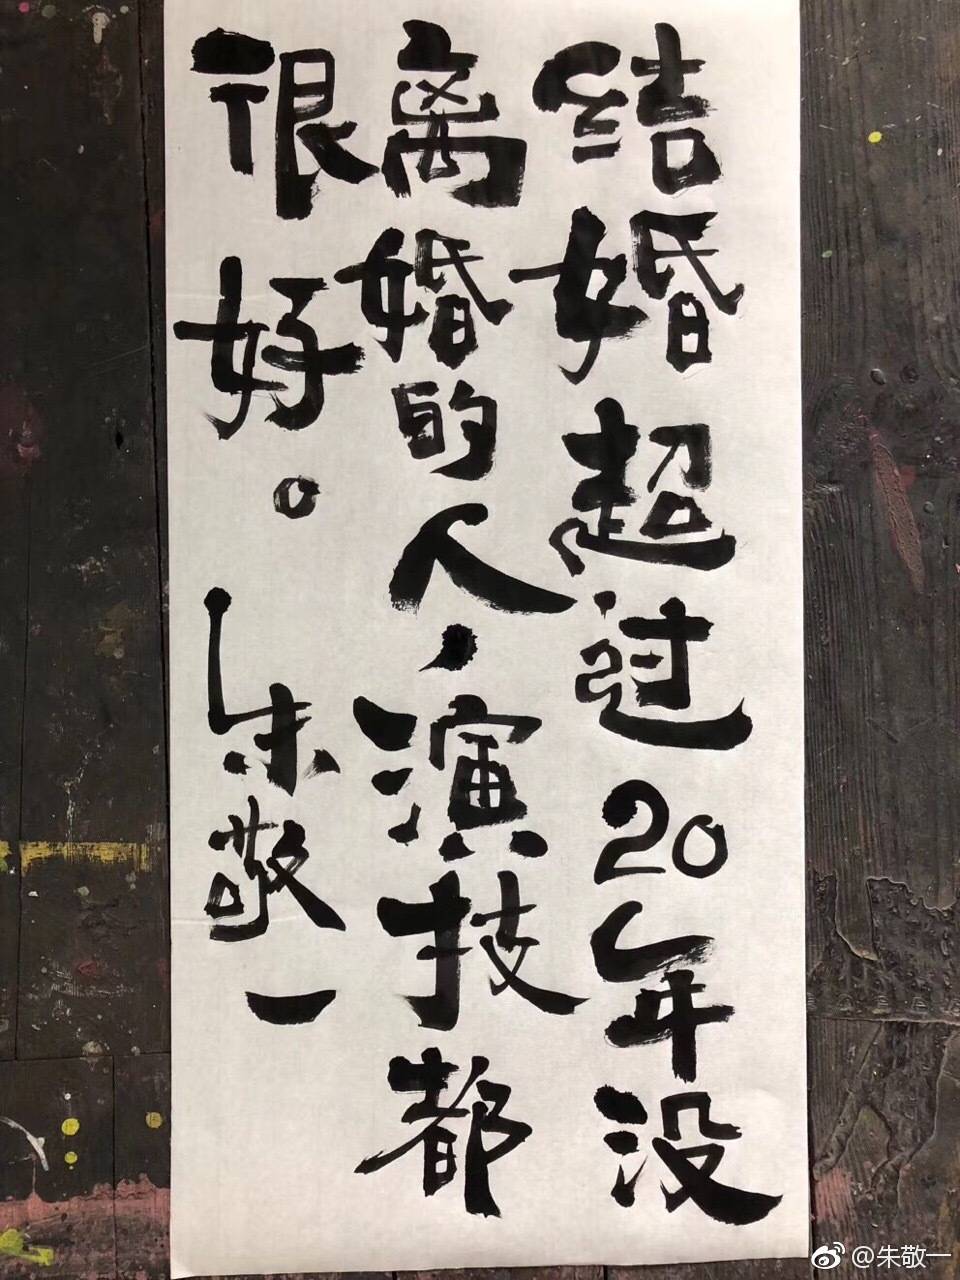 结婚超过20年没
离婚的人，演技都
很好。朱敬一
@朱敬一